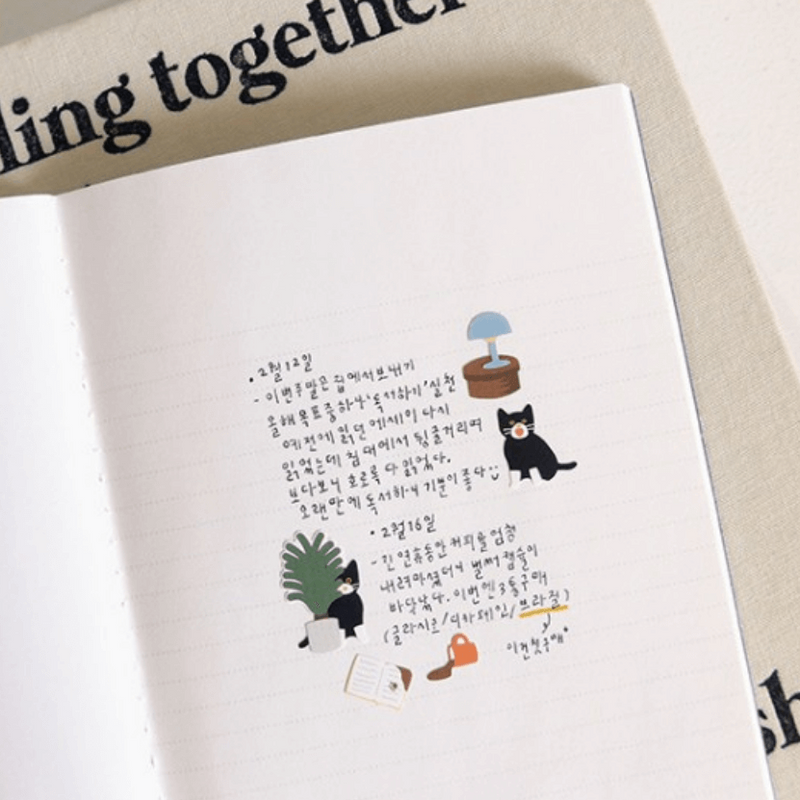 ling together
• 2월 12일
- 이번주말은 집에서 보내기
올해 목표중 하나 '독서하기' 실천
예전에 읽던 에세이 다시
읽었는데 침대에서 뒹굴거리며
보다보니 호로록 다 읽었다.
오랜만에 독서하니 기분이 좋다
• 2월 16일
- 긴 연휴동안 커피를 엄청
내려마셨더니 벌써 캡슐이
바닥났다. 이번엔 3통구매
(글라시로/디카페인/브라질)
이건첫구매
sh